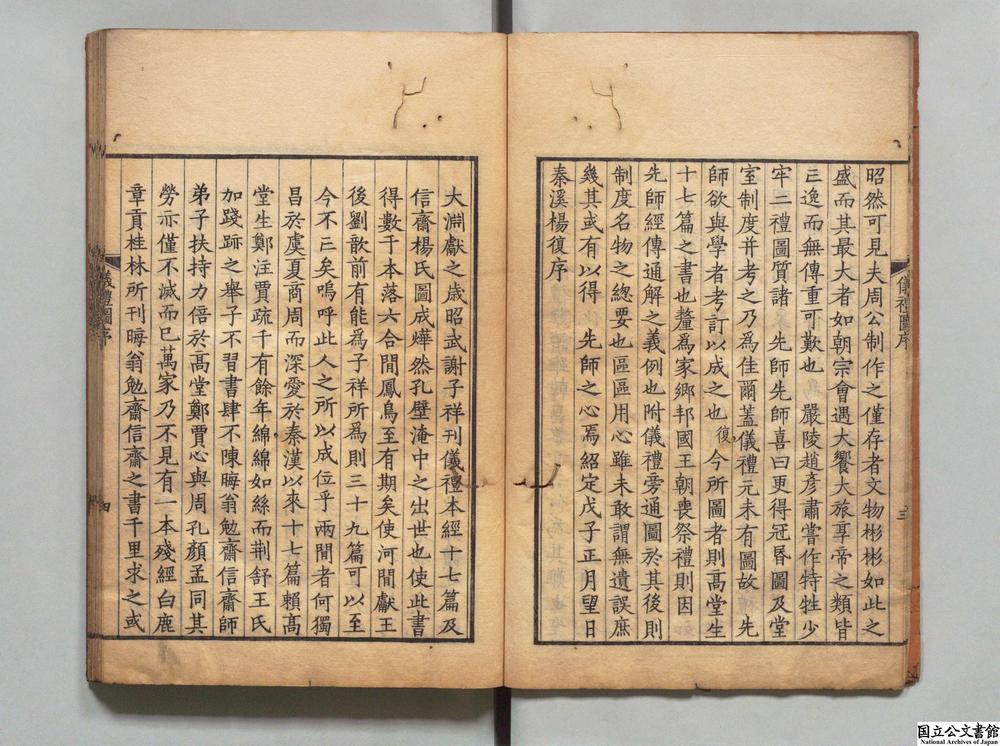 昭然可見夫周公制作之僅存者文物彬彬如此之
盛而其最大者如朝宗會遇大饗大旅享帝之類皆
亾逸而無傳重可歎也 嚴陵趙彥肅嘗作特牲少
牢二禮圖質諸 先師先師喜曰更得冠昏圖及堂
室制度并考之乃為佳爾蓋儀禮元未有圖故 先
師欲與學者考訂以成之也復今所圖者則髙堂生
十七篇之書也釐為家鄉邦國王朝喪祭禮則因
先師經傳通解之義例也附儀禮旁通圖於其後則
制度名物之總要也區區用心雖未敢謂無遺誤庶
幾其或有以得 先師之心焉紹定戊子正月望日
秦溪楊復序
儀禮圖序
三
大淵獻之歳昭武謝子祥刊儀禮本經十七篇及
信齋楊氏圖成燁然孔壁淹中之出世也使此書
得數千本落六合間鳳鳥至有期矣使河間獻王
後劉歆前有能為子祥所為則三十九篇可以至
今不亾矣嗚呼此人之所以成位乎兩間者何獨
昌於虞夏商周而深愛於秦漢以來十七篇賴髙
堂生鄭注賈疏千有餘年綿綿如絲而荆舒王氏
加踐跡之舉子不習書肆不陳晦翁勉齋信齋師
弟子扶持力倍於髙堂鄭賈心與周孔顏孟同其
勞亦僅不滅而已萬家乃不見有一本殘經白鹿
章貢桂林所刊晦翁勉齋信齋之書千里求之或
儀禮圖序
四
国立公文書館
National Archives of Japan